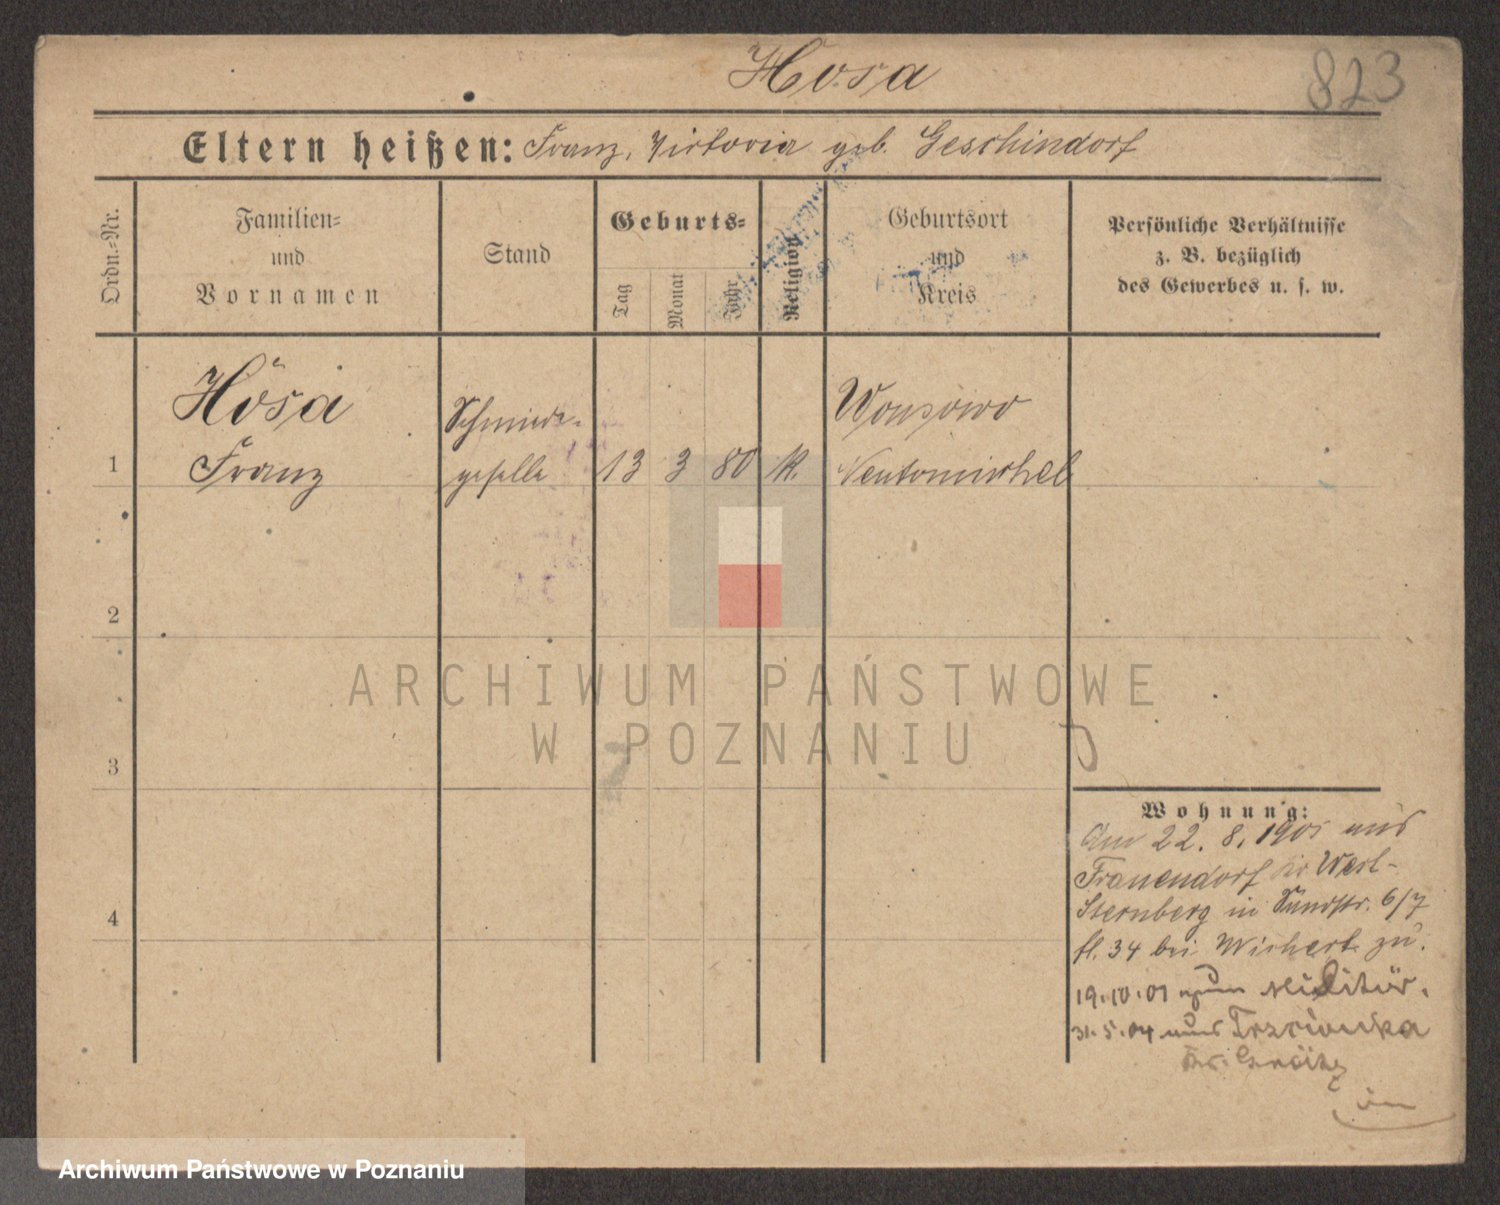 Hosa
823
Eltern heißen: Franz, Viktoria geb. Geschindorf
Ordn.=Nr.
Familien=
und
Vornamen
Stand
Geburts=
Tag
Monat
Jahr
Religion
Geburtsort
und
Kreis
Persönliche Verhältnisse
z. B. bezüglich
des Gewerbes u. s. w.
1
Hosa
Franz
Schmiede-
geselle
13 3 80 k.
Wonsowo
Neutomischel
2
3
4
ARCHIWUM PAŃSTWOWE
W POZNANIU
Wohnung:
Am 22. 8. 1901 aus
Frauendorf Kr West-
Sternberg in 6/7
bei Wichert zu.
19.10.01 zum Militär.
31.5.04 nach Trzcionka
Kr. Grätz
Archiwum Państwowe w Poznaniu